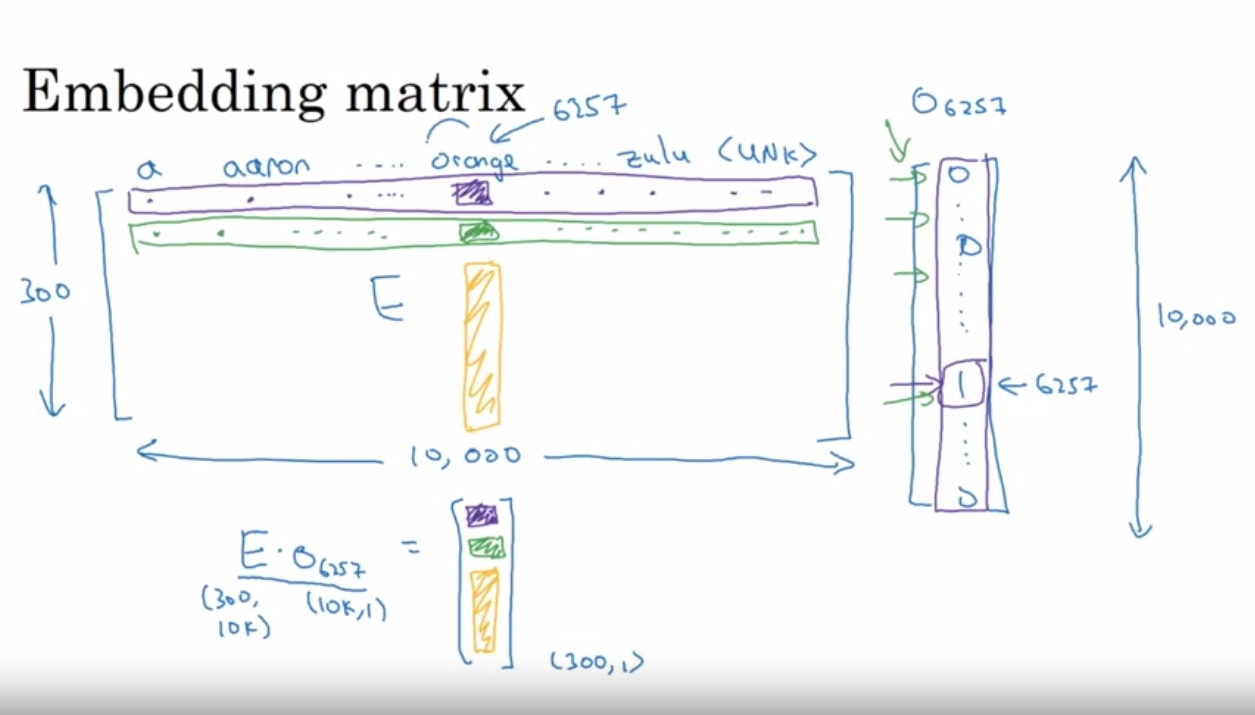 Embedding matrix
6257
O6257
a aaron ..... orange ..... zulu <UNK>
300
E
0
0
1 ← 6257
0
10,000
10,000
E · O6257 =
(300, 10K) (10K, 1)
(300, 1)